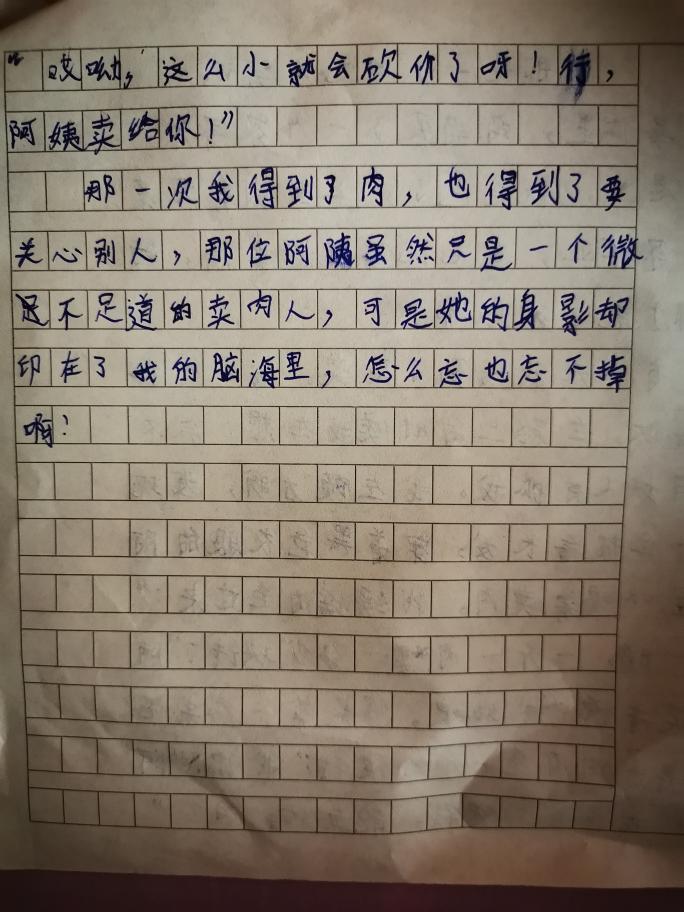 “哎呦，这么小就会砍价了呀！行，
阿姨卖给你！”
那一次我得到了肉，也得到了要
关心别人，那位阿姨虽然只是一个微
足不足道的卖肉人，可是她的身影却
印在了我的脑海里，怎么忘也忘不掉
啊！